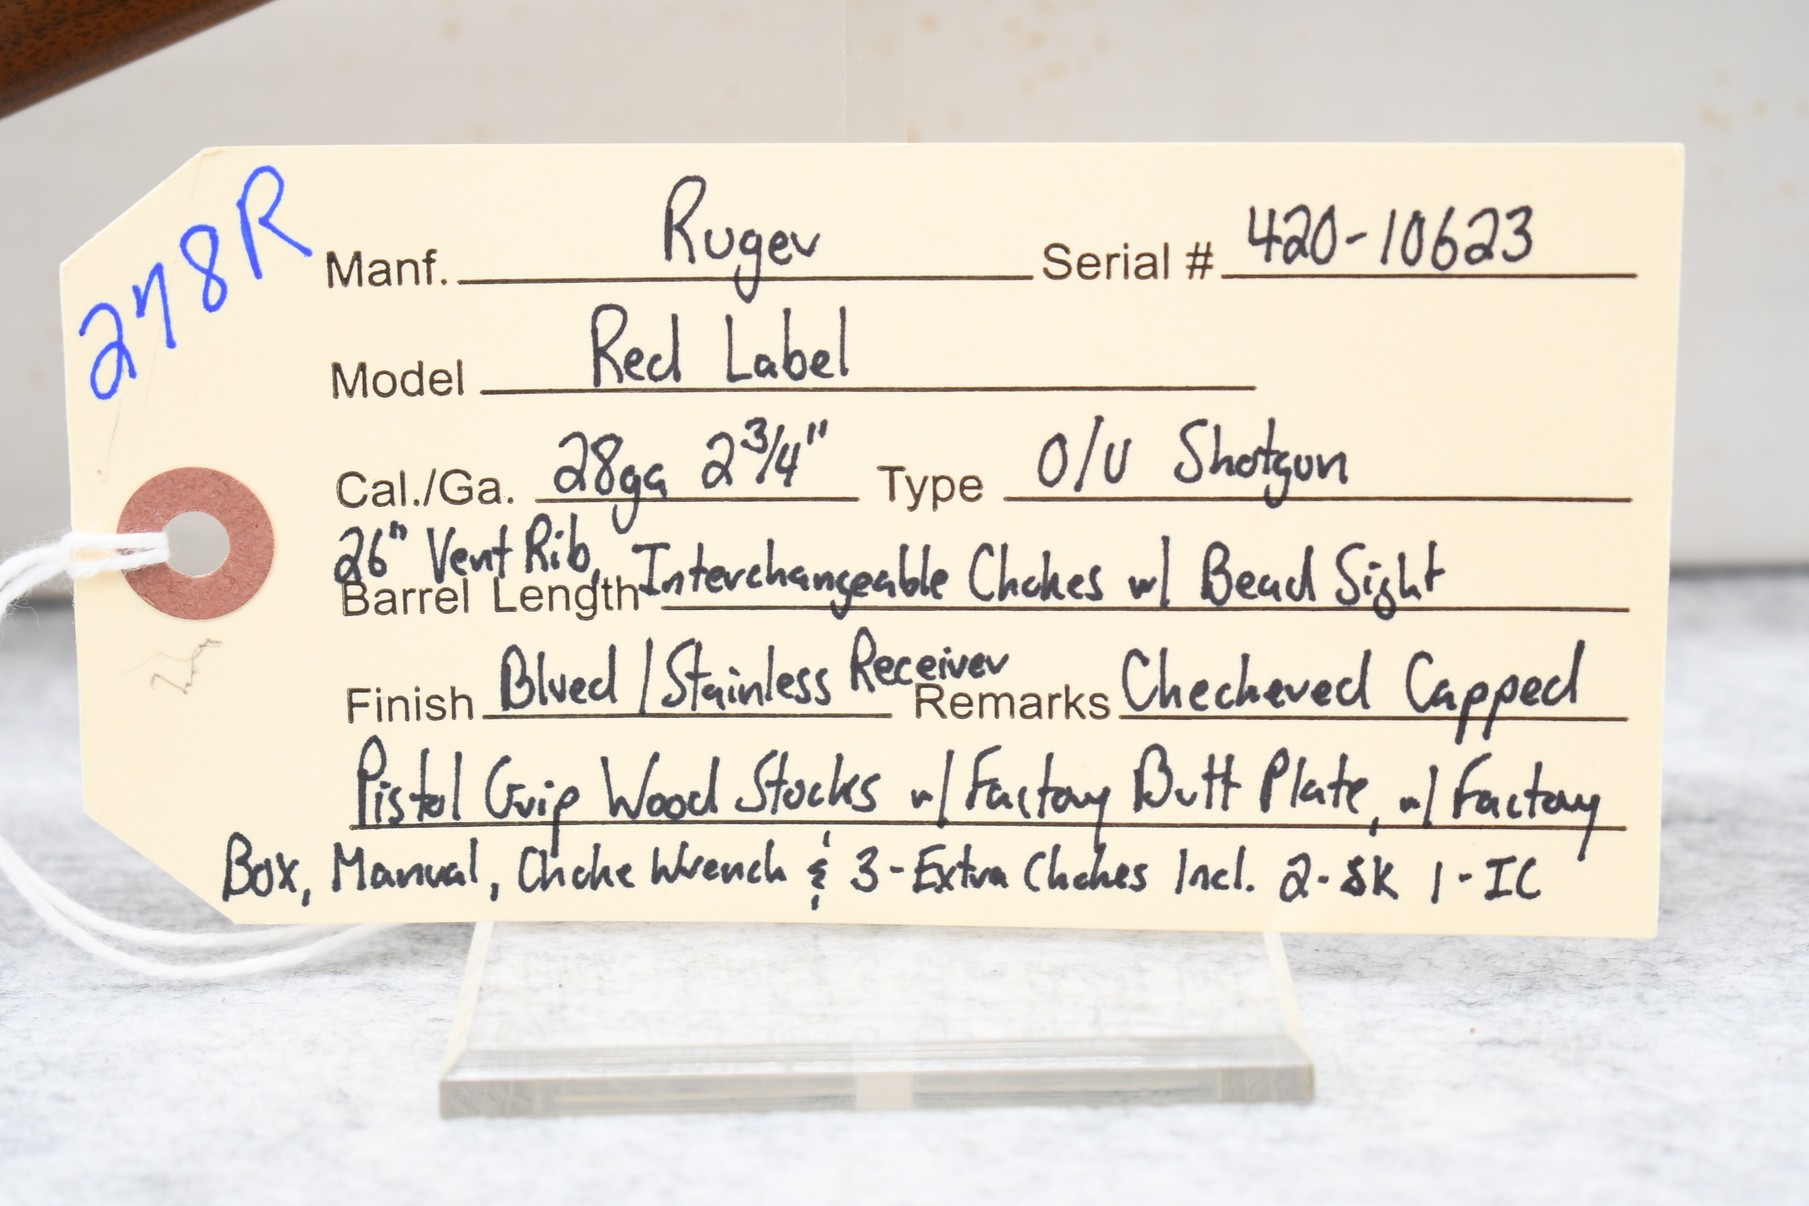 278R
Manf. Ruger Serial # 420-10623
Model Red Label
Cal./Ga. 28ga 2 3/4" Type O/U Shotgun
26" Vent Rib, Interchangeable Chokes w/ Bead Sight
Barrel Length
Finish Blued / Stainless Receiver Remarks Checkered Capped
Pistol Grip Wood Stocks w/ Factory Butt Plate, w/ Factory
Box, Manual, Choke Wrench & 3-Extra Chokes Incl. 2-SK 1-IC